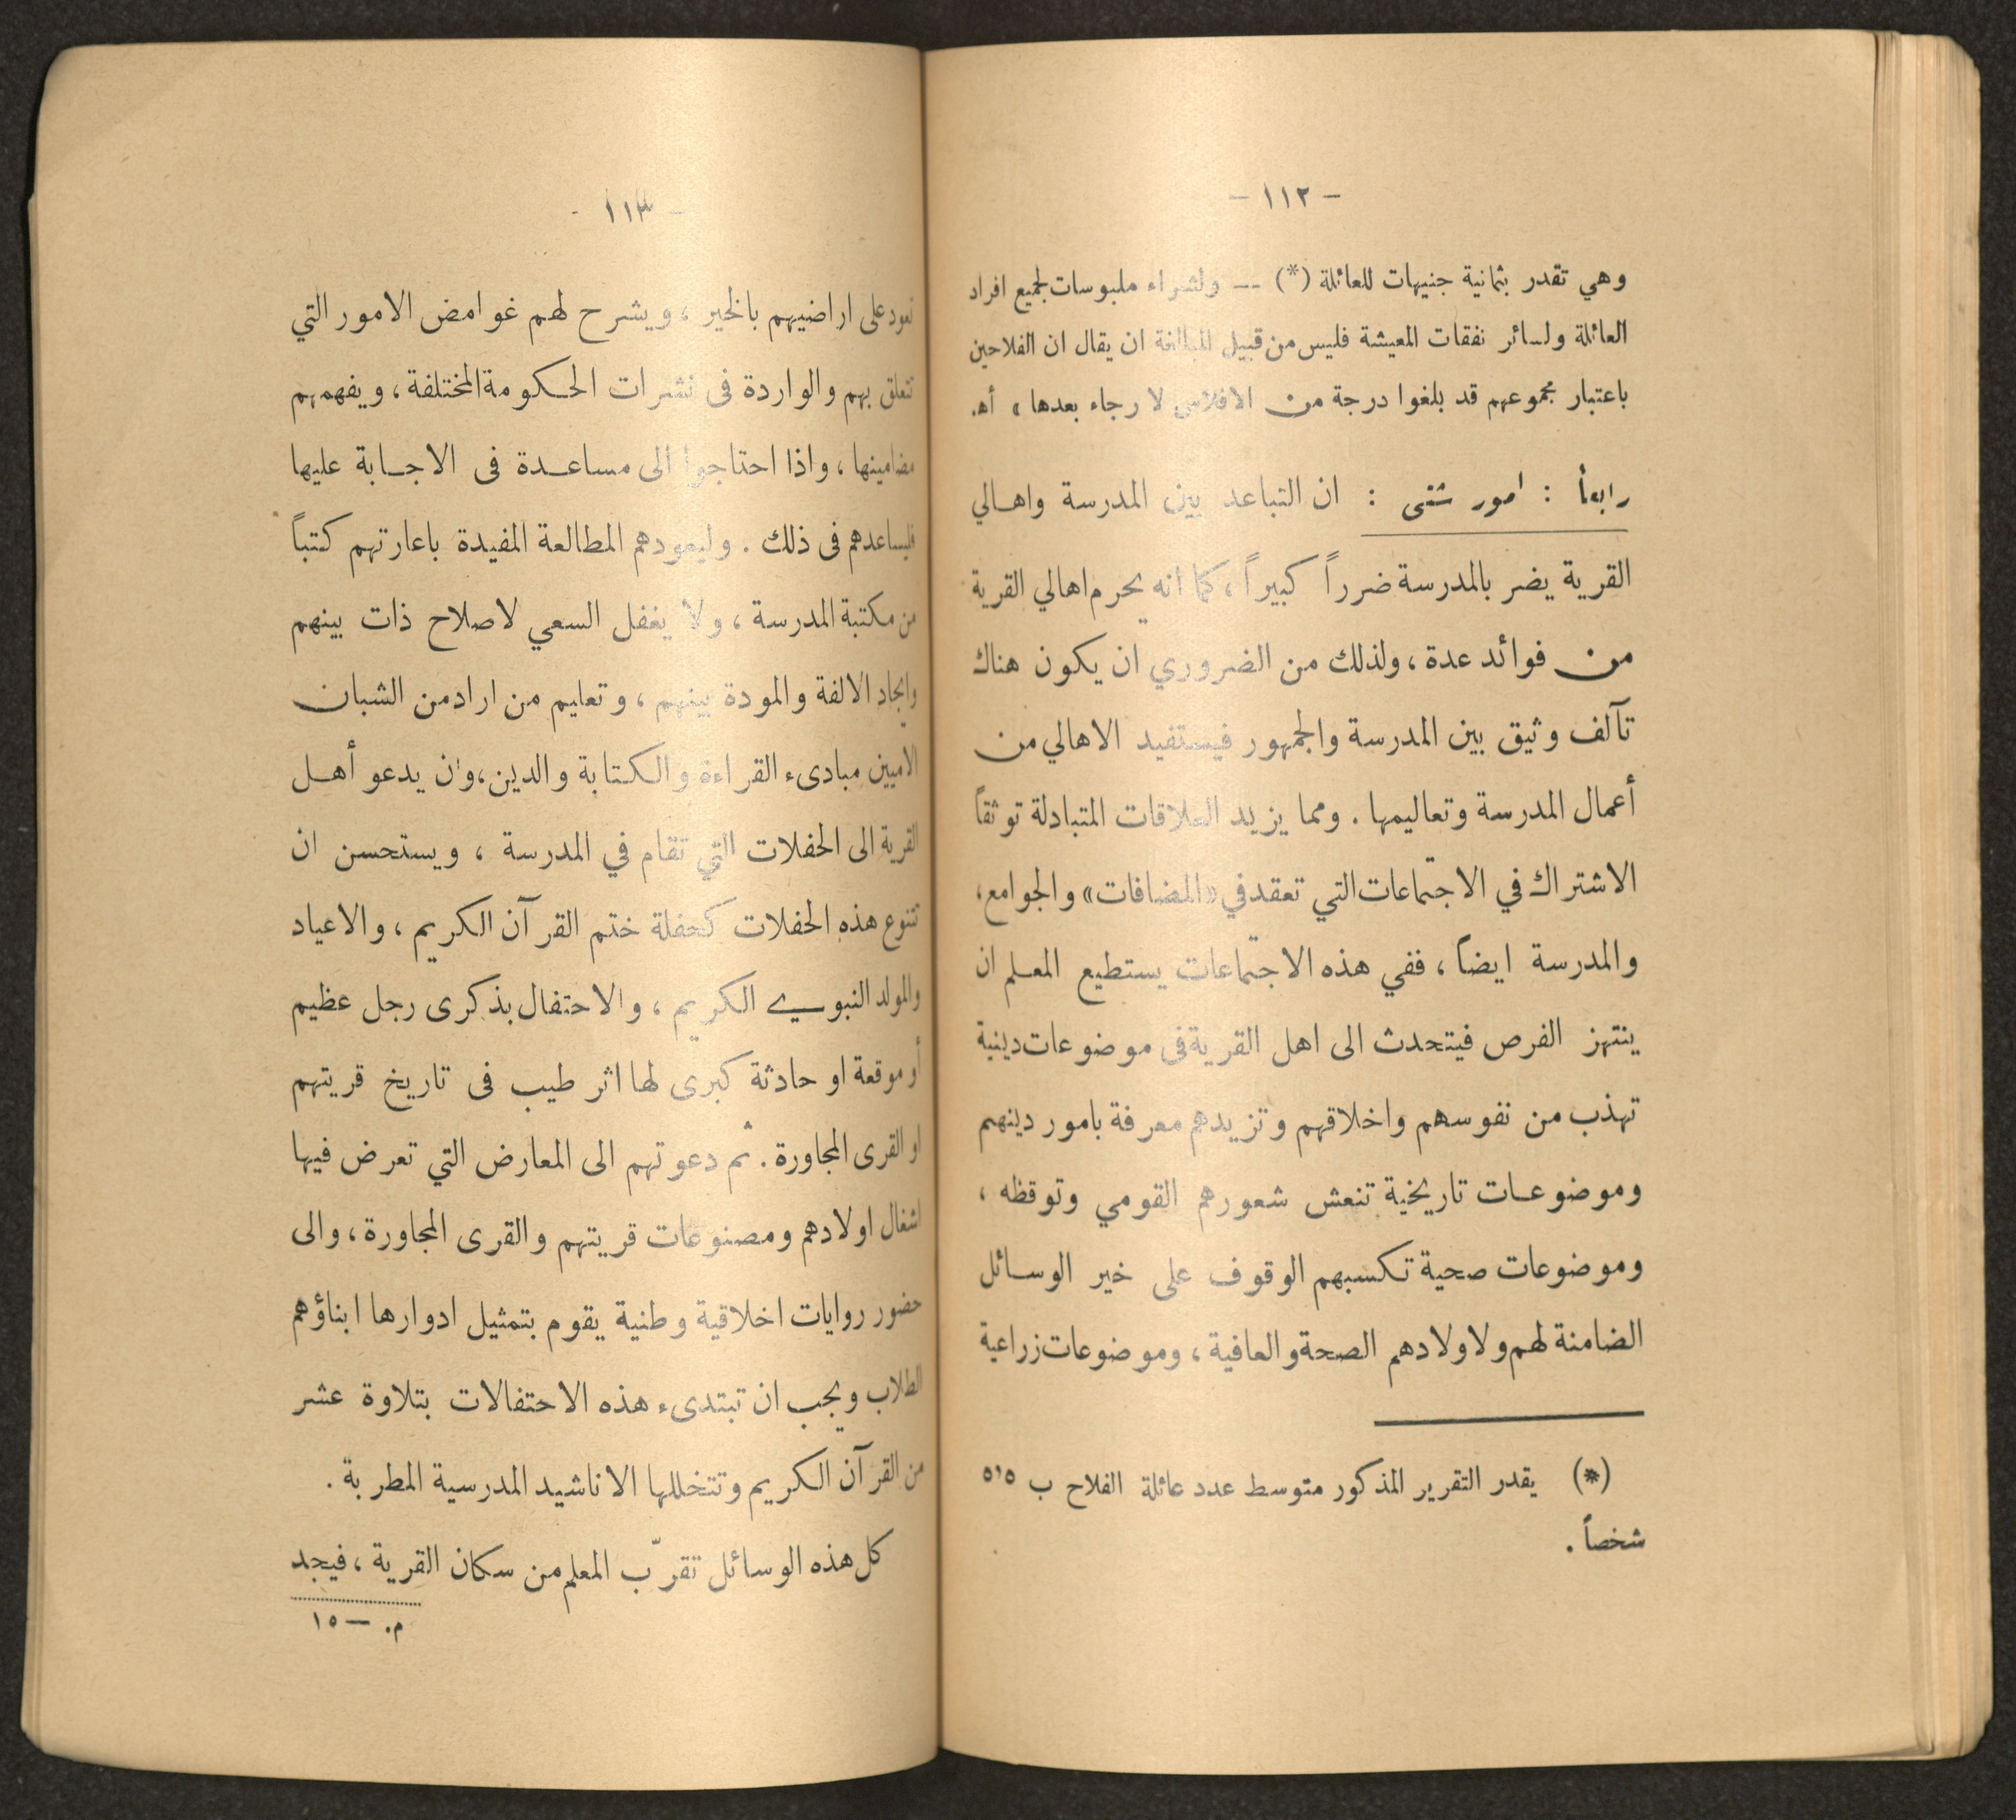 - ١١٢ -
وهي تقدر بثمانية جنيهات للعائلة (*) -- ولشراء ملبوسات لجميع افراد
العائلة ولسائر نفقات المعيشة فليس من قبيل المبالغة ان يقال ان الفلاحين
باعتبار مجموعهم قد بلغوا درجة من الافلاس لا رجاء بعدها » أه.
رابعاً : امور شتى : ان التباعد بين المدرسة واهالي
القرية يضر بالمدرسة ضرراً كبيراً ، كما انه يحرم اهالي القرية
من فوائد عدة ، ولذلك من الضروري ان يكون هناك
تآلف وثيق بين المدرسة والجمهور فيستفيد الاهالي من
أعمال المدرسة وتعاليمها . ومما يزيد العلاقات المتبادلة توثقاً
الاشتراك في الاجتماعات التي تعقد في «المضافات» والجوامع ،
والمدرسة ايضاً ، ففي هذه الاجتماعات يستطيع المعلم ان
ينتهز الفرص فيتحدث الى اهل القرية فى موضوعات دينية
تهذب من نفوسهم واخلاقهم وتزيدهم معرفة بامور دينهم
وموضوعات تاريخية تنعش شعورهم القومي وتوقظه ،
وموضوعات صحية تكسبهم الوقوف على خير الوسائل
الضامنة لهم ولاولادهم الصحة والعافية ، وموضوعات زراعية
(*) يقدر التقرير المذكور متوسط عدد عائلة الفلاح ب ٥،٥
شخصاً .
- ١١٣ -
تعود على اراضيهم بالخير ، ويشرح لهم غوامض الامور التي
تتعلق بهم والواردة فى نشرات الحكومة المختلفة ، ويفهمهم
مضامينها ، واذا احتاجوا الى مساعدة فى الاجابة عليها
فليساعدهم فى ذلك . وليعودهم المطالعة المفيدة باعارتهم كتباً
من مكتبة المدرسة ، ولا يغفل السعي لاصلاح ذات بينهم
وايجاد الالفة والمودة بينهم ، وتعليم من اراد من الشبان
الاميين مبادىء القراءة والكتابة والدين ، وان يدعو أهل
القرية الى الحفلات التي تقام في المدرسة ، ويستحسن ان
تتنوع هذه الحفلات كحفلة ختم القرآن الكريم ، والاعياد
والمولد النبوي الكريم ، والاحتفال بذكرى رجل عظيم
أو موقعة او حادثة كبرى لها اثر طيب فى تاريخ قريتهم
او القرى المجاورة . ثم دعوتهم الى المعارض التي تعرض فيها
اشغال اولادهم ومصنوعات قريتهم والقرى المجاورة ، والى
حضور روايات اخلاقية وطنية يقوم بتمثيل ادوارها ابناؤهم
الطلاب ويجب ان تبتدىء هذه الاحتفالات بتلاوة عشر
من القرآن الكريم وتتخللها الاناشيد المدرسية المطربة .
كل هذه الوسائل تقرّب المعلم من سكان القرية ، فيجد
م. — ١٥